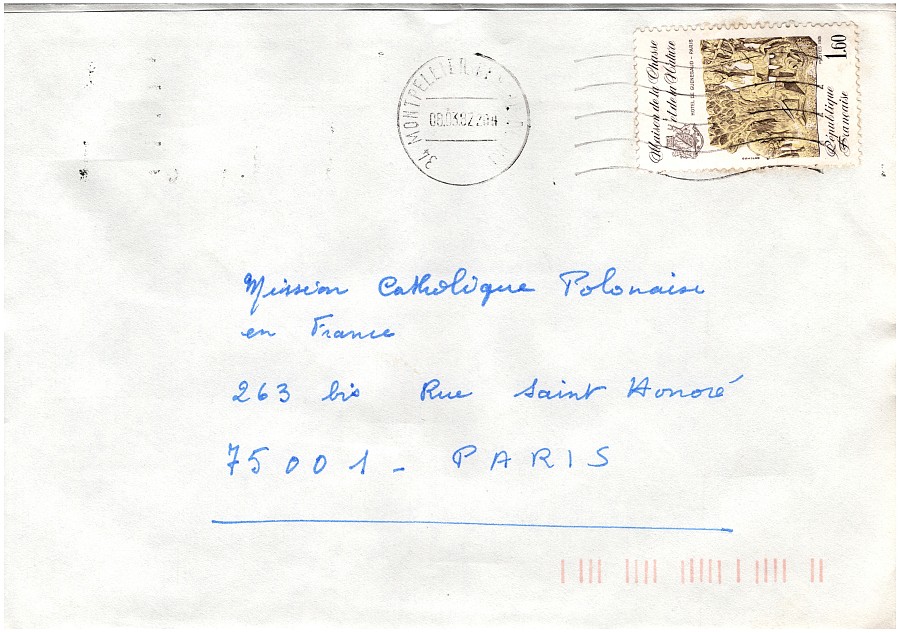 34 MONTPELLIER
08.03.82 20H
Maison de la Chasse
et de la Nature
HOTEL DE GUENEGAUD - PARIS
1.60
République
Française
Mission Catholique Polonaise
en France
263 bis Rue Saint Honoré
75001 - PARIS